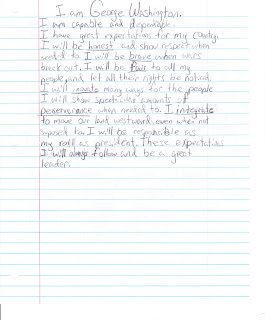 I am George Washington.
I am capable and dependable.
I have great expectations for my country.
I will be honest and show respect when
needed to. I will be brave when wars
break out. I will be fair to all my
people and let all their rights be noticed.
I will innovate many ways for the people
I will show spectacular amounts of
perserverance when needed to. I integrate
to move our land westward, even when not
suposed to. I will be responsible as
my roll as president. These expectations
I will always follow and be a great
leader.